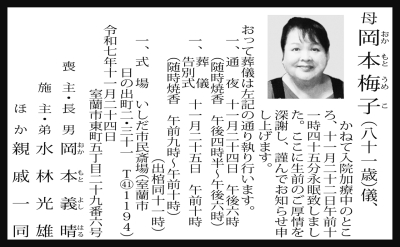 母 岡本梅子(八十一歳)儀、
おか もと うめ こ
かねて入院加療中のとこ
ろ、十一月二十二日午前十
一時四十五分永眠致しまし
た。ここに生前のご厚情を
深謝し、謹んでお知らせ申
し上げます。
おって葬儀は左記の通り執り行います。
一、通夜 十一月二十四日 午後六時
(随時焼香 午後四時半〜午後六時)
一、葬儀 告別式 十一月二十五日 午前十時
(随時焼香 午前九時〜午前十時)
(出棺同十一時)
一、式場 いしだ市民斎場(室蘭市
日の出町二ー二十一 T㊶1194)
令和七年十一月二十四日
室蘭市東町五丁目二十九番六号
喪主・長男 岡本義晴
おか もと よし はる
施主・弟 水林光雄
ほか 親戚一同